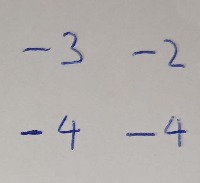 -3 -2
-4 -4